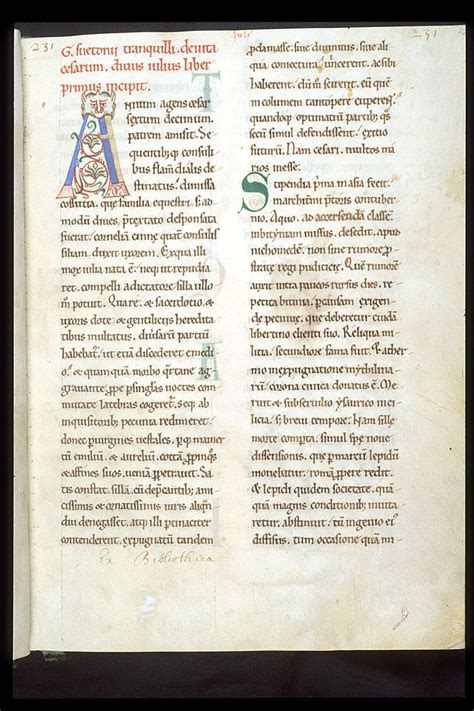 231
Juli
231
G. suetonii tranquilli. de uita
cesarum. diuus iulius liber
primus incipit.
Annum agens cesar
sextum decimum.
patrem amisit. Se-
quentibq; consuli
bus flam dialis de
stinatus. dimissa
cossutia. que familia equestri. s; ad
modū diues. p̄textato desponsata
fuerat. corneliā cinne quat̄ consulis
filiam. duxit uxorem. Ex qua illi
mox iulia nata ē. neq; ut repudia
ret. compelli a dictatore silla ullo
m̄ potuit. Quare & sacerdotio. &
uxoris dote. & gentiliciis heredita
tibus multatus. diuersarū partiū
habebat̄. ut etiā discederet e medi-
o. & quamquā morbo q̄rtane ag-
grauante. ꝓpe p̄ singlas noctes com
mutare latebras coger&. seq; ab
inquisitorib; pecunia redimeret.
donec p̄ uirgines uestales. p̄q; mamer
cū emiliū. & aureliū. cottā. ꝓpinq̄s
& affines suos. ueniā īpetrauit. Sa-
tis constat. sillā. cū dep̄cantib; ami-
cissimis & ornatissimis uiris aliqn̄
diu denegasset. atq; illi ptinacit̄
contenderent. expugnatū tandem
Ex Bibliotheca
ꝓclamasse. siue diuinitus. siue ali
qua coniectura. uincerent. ac sibi
haberent. dūm scirent. eū quē
incolumem tantopere cuperent.
quandoq; optimatū partib; q̄s
secū simul defendissent. exitio
futurū. Nam cesari. multos ma
rios inesse.
Stipendia p̄ma in asia fecit.
marci thermi p̄toris contuber
nio. A quo. ad accersendā classē.
in bithyniam missus. desedit. apud
nichomedē. non sine rumore ꝓ
strate regi pudicitie. Quē rumorē
auxit intra paucos rursus dies. re
petita bitinia. p̄ causam exigen-
de pecunie. que deberetur cuidā
libertino clienti suo. Reliqua mi
litia. secundiore fama fuit. & a ther
mo in expugnatione mythilina-
rū. corona ciuica donatus ē. Me-
ruit & sub seruilio ysaurico in ci
licia. s; breui tempore. Nam sille
morte compta. simul spe noue
dissensionis. que p̄ marcū lepidū
mouebatur. romā ꝓpere redit.
& lepidi quidem societate. quā
quā magnis conditionib; inuita
retur. abstinuit. tū ingenio ei'
diffisus. tum occasione quā mi-